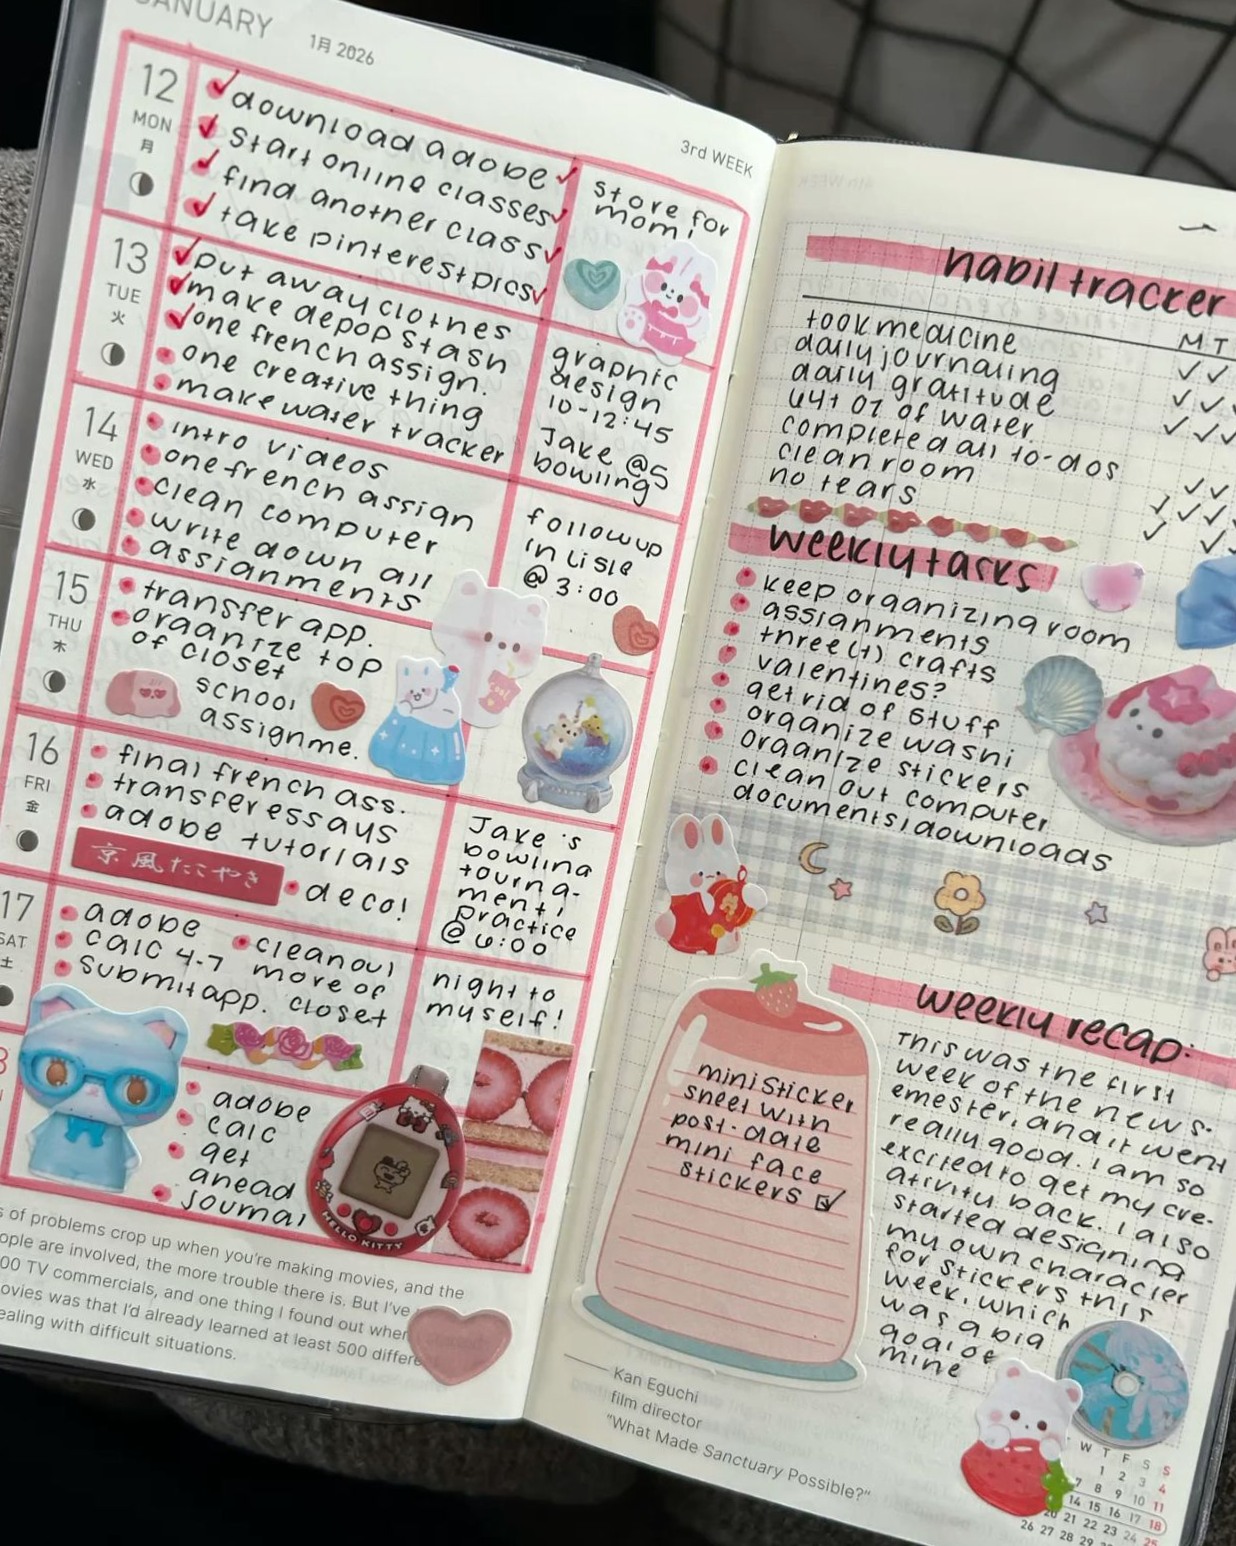 JANUARY
1月 2026
3rd WEEK
12
MON
月
download adobe
start online classes
find another class
take pinterest pics
store for
mom!
13
TUE
火
put away clothes
make depop stash
one french assign.
one creative thing
make water tracker
graphic
design
10-12:45
Jake @5
bowling
14
WED
水
intro videos
one french assign
clean computer
write down all
assignments
follow up
in lisle
@ 3:00
15
THU
木
transfer app.
organize top
of closet
school
assignme.
16
FRI
金
final french ass.
transfer essays
adobe tutorials
京風たこやき
deco!
Jake's
bowling
tourna-
ment!
practice
@ 6:00
17
SAT
土
adobe
calc 4.7
submit app.
clean out
more of
closet
night to
myself!
adobe
calc
get
ahead
journal
HELLO KITTY
s of problems crop up when you're making movies, and the
ople are involved, the more trouble there is. But I've
00 TV commercials, and one thing I found out when
ovies was that I'd already learned at least 500 differe
ealing with difficult situations.
habit tracker
M T
took medicine
daily journaling
daily gratitude
64+ oz of water
completed all to-dos
clean room
no tears
weekly tasks
keep organizing room
assignments
three (+) crafts
valentines?
get rid of stuff
organize washi
organize stickers
clean out computer
documents/downloads
mini sticker
sheet with
post-date
mini face
stickers
weekly recap:
This was the first
week of the new s-
emester, and it went
really good. i am so
excited to get my cre-
ativity back. i also
started designing
my own character
for stickers this
week, which
was a big
goal of
mine
Kan Eguchi
film director
"What Made Sanctuary Possible?"
W T F S S
1 2 3 4
7 8 9 10 11
14 15 16 17 18
20 21 22 23 24 25
26 27 28 29